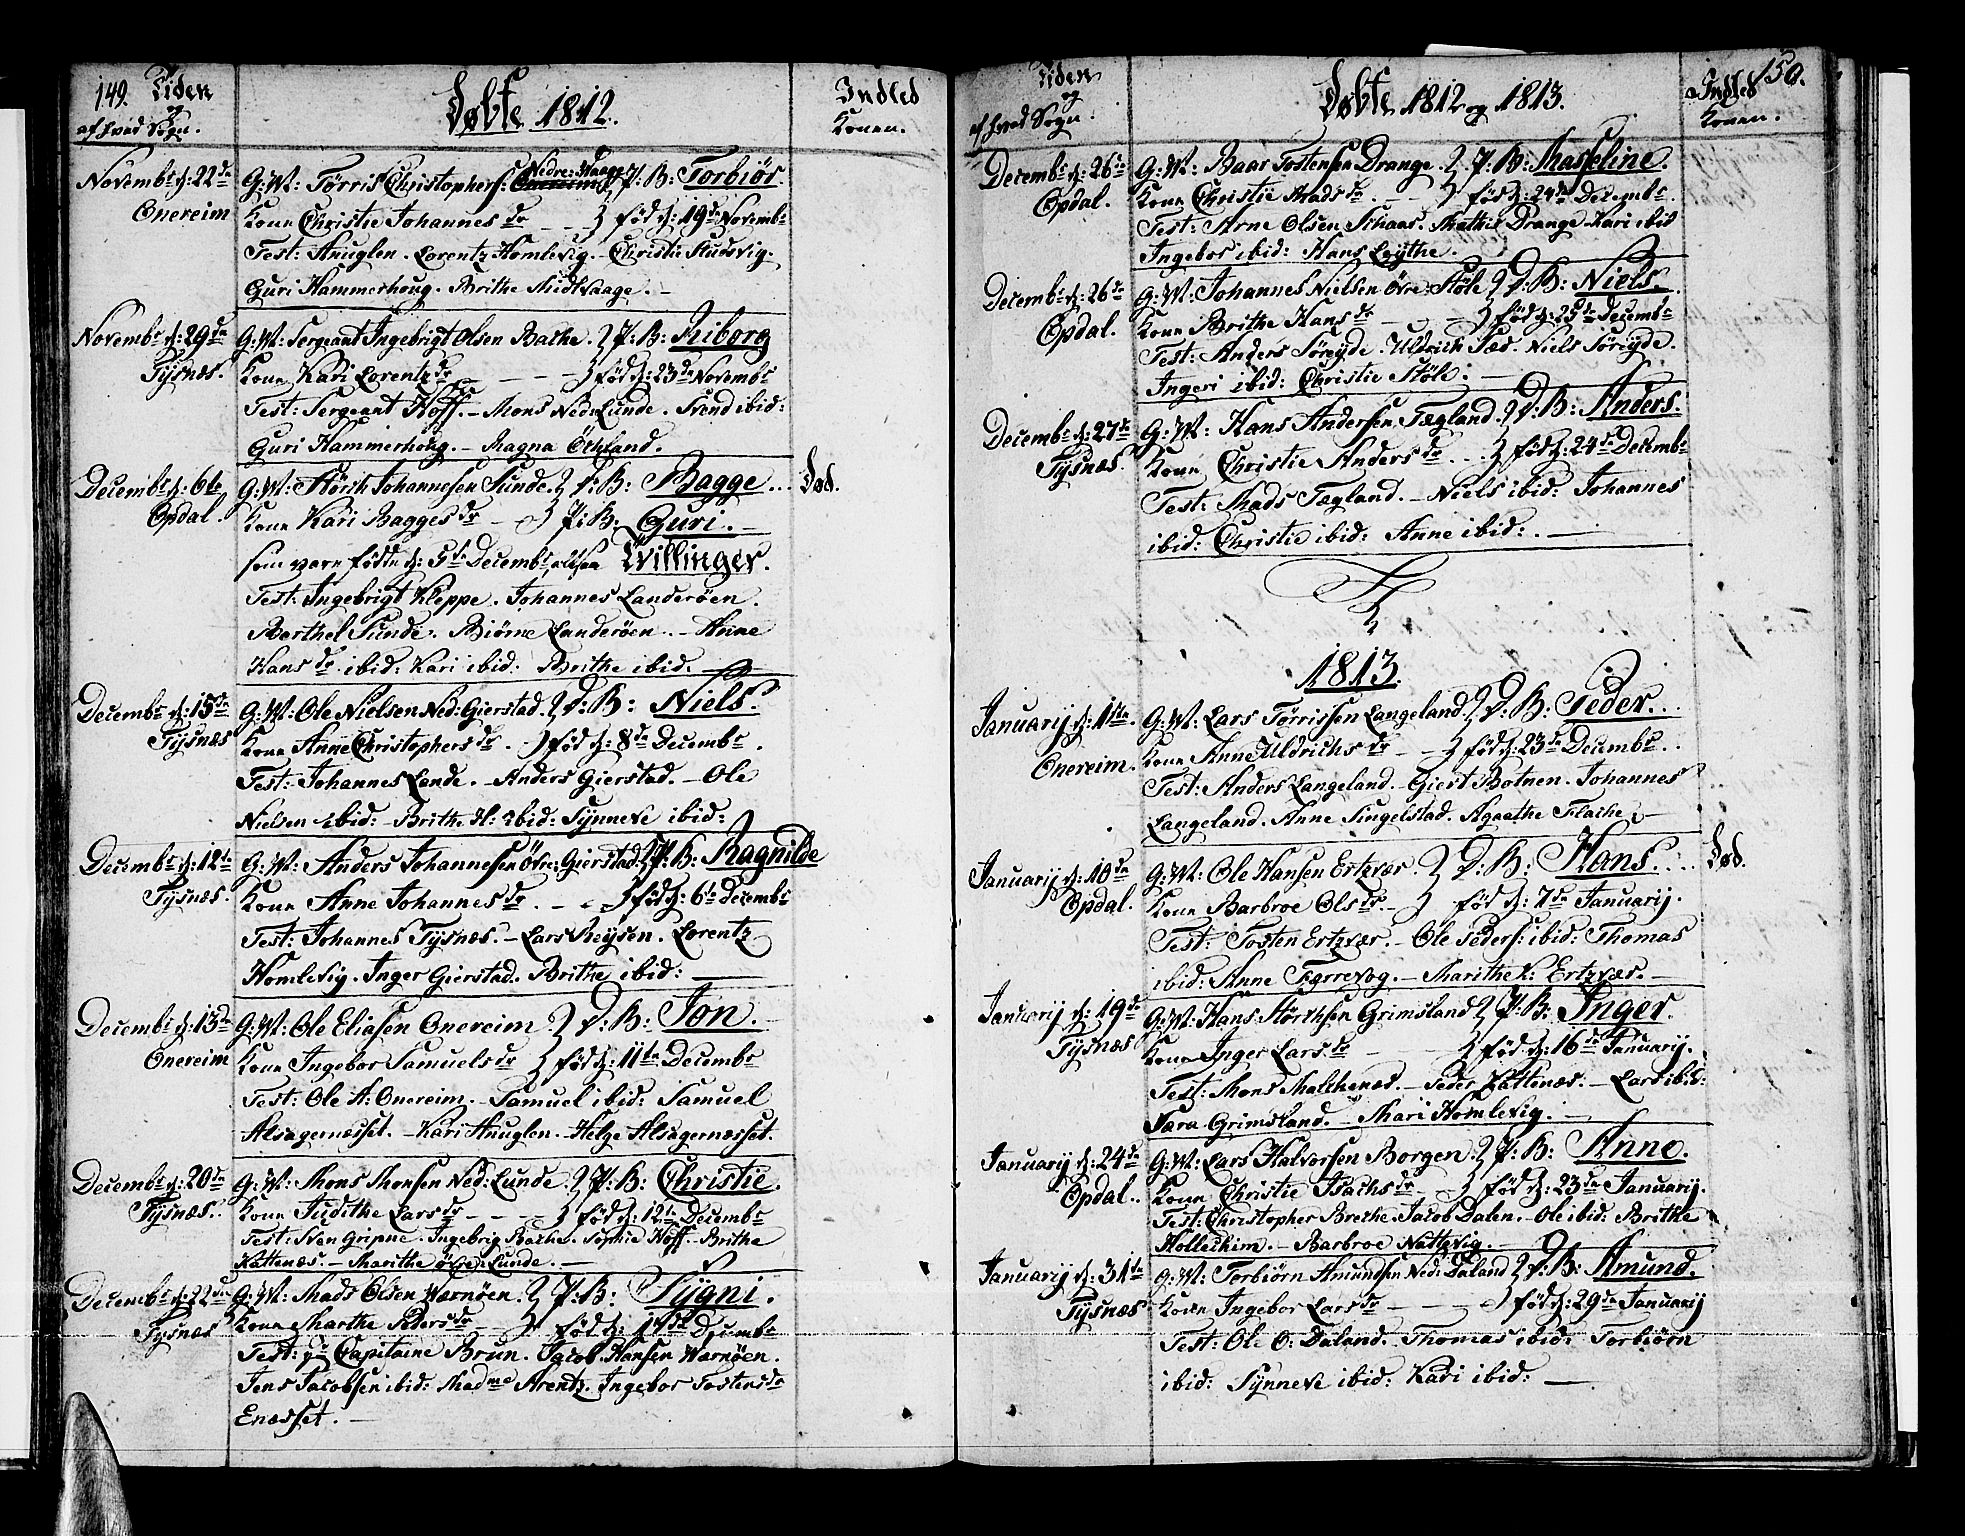 149. Tiden
og
af hvad Sogn.
Døbte 1812.
Indled
Konen.
Novembr d: 22de
Onereim
G: M: Tørris Christophers: Nedre: Waage P: B: Torbiør.
Kone Christie Johannes dr - - født d: 19de Novembr
Test: Anuglen. Lorentz Homlevig. Christie
Guri Hammerhoug. Brithe Midtvaage. -
Novembr d: 29de
Tysnæs.
G: M: Sergeant Ingebrigt Olsen Bakke. P: B: Kiborg
Kone Kari Lorentz dr - - - født d: 23de Novembr
Test: Sergeant Hoff. - Mons Ned: Lunde. Svend ibid:
Guri Hammerhoug. - Magna
Decembr d: 6te
Opdal.
G: M: Størk Johannesen Sunde. D: B: Bagge... Død.
Kone Kari Bagges dr - P: B: Guri. -
som vare fødde d: 5te Decembr, altsaa Tvillinger.
Test: Ingebrigt Kleppe. Johannes Landerøen.
Berthel Sunde. Biørne Landerøen. - Anne
Hans dr ibid: Kari ibid: Brithe ibid. -
Decembr d: 15de
Tysnæs
G: M: Ole Nielsen Ned: Gierstad. D: B: Niels.
Kone Anne Christophers dr. født d: 8de Decembr.
Test: Johannes Lende. - Anders Gierstad. - Ole
Nielsen ibid: - Brithe H: ibid: Synneve ibid:
Decembr d: 12te
Tysnæs.
G: M: Anders Johannesen Øvre: Gierstad. P: B: Ragnilde
Kone Anne Johannes dr. - - født d: 6te Decembr
Test: Johannes Tysnæs. - Lars Reysen. Lorentz
Homlevig. Inger Gierstad. Brithe ibid: -
Decembr d: 13de
Onereim
G: M: Ole Eliasen Onereim. D: B: Jon. -
Kone Ingebor Samuels dr født d: 11te Decembr
Test: Ole A: Onereim. - Samuel ibid: Samuel
Alsagernæsset. - Kari Anuglen. - Helge Alsagernæsset.
Decembr d: 20de
Tysnæs.
G: M: Mons Monsen Ned: Lunde. P: B: Christie.
Kone Judithe Lars dr - - - født d: 12te Decembr
Test: Sven Gripne. Ingebrig Bakke. Sophie Hoff. Brithe
Kattenæs. - Marithe Øvre: Lunde. -
Decembr d: 22de
Tysnæs
G: M: Mads Olsen Warnøen. P: B: Sygni.
Kone Marthe Peders dr - - født d: 17de Decembr
Test: Hr Capitaine Brun. Jacob Hansen Warnøen.
Jens Jacobsen ibid: Madme Arentz. Ingebor Tostens dr
Enæsset. -
Tiden
og
af hvad Sogn.
Døbte 1812 og 1813.
Indled
Konen.
150.
Decembr d: 26de
Opdal.
G: M: Baar Tostensen Drange. P: B: Masseline.
Kone Christie Mads dr. - - født d: 24de Decembr.
Test: Arne Olsen Skaar. Mattis Drange. Kari ibid
Ingebor ibid: Hans Løythe.
Decembr d: 26de
Opdal.
G: M: Johannes Nielsen Øvre: Støle D: B: Niels.
Kone Brithe Hans dr - - - født d: 25de Decembr
Test: Anders Søreyde. Uldrich Sæd. Niels Søreyde.
Ingeri ibid: Christie Støle: -
Decembr d: 27de
Tysnæs.
G: M: Hans Andersen Tægland. D: B: Anders.
Kone Christie Anders dr. - - født d: 24de Decembr
Test: Mads Tægland. - Niels ibid: Johannes
ibid: Christie ibid: Anne ibid: . -
1813.
Januarij d: 1ste
Onereim.
G: M: Lars Tørrissen Langeland. D: B: Peder...
Kone Anne Uldrichs dr - - født d: 23de Decembr..
Test: Anders Langeland. - Giert Botnen. Johannes
Langeland. Anne Singelstad. Agaathe Flathe. -
Januarij d: 10de
Opdal.
G: M: Ole Hansen Ertzvær. D: B: Hans... Død.
Kone Barbroe Ols dr. - født d: 7de Januarij.
Test: Tosten Ertzvær. - Ole Peders: ibid: Thomas
ibid: Anne Færrevog. - Marithe K: Ertzvær. -
Januarij d: 19de
Tysnæs
G: M: Hans Størksen Grimsland P: B: Inger.
Kone Inger Lars dr - - - født d: 16de Januarij.
Test: Mons Malchenæs. - Peder Kattenæs. - Lars ibid:
Sara Grimsland. - Mari Homlevig. -
Januarij d: 24de
Opdal..
G: M: Lars Halvorsen Borgen. P: B: Anne.
Kone Christie Isachs dr - født d: 23de Januarij.
Test: Christopher Brethe. Jacob Dalen. - Ole ibid: Brithe
Hollechim. - Barbroe Nattevig. -
Januarij d: 31te
Tysnæs
G: M: Torbiørn Amundsen Ned: Daland D: B: Amund.
Kone Ingebor Lars dr - - - født d: 29de Januarij
Test: Ole O: Daland. Thomas ibid: Torbiørn
ibid: Synneve ibid: Kari ibid: -